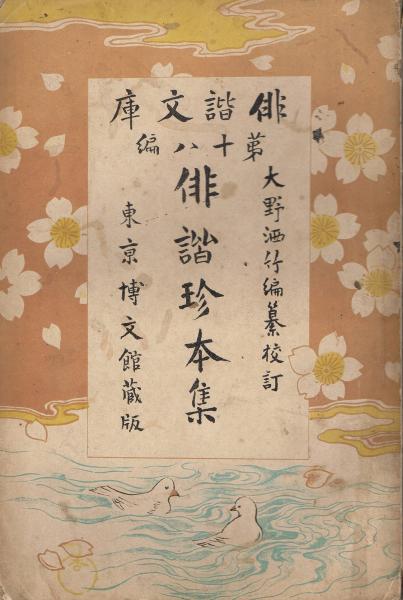 俳諧文庫
第十八編
大野洒竹編纂校訂
俳諧珍本集
東京博文館蔵版